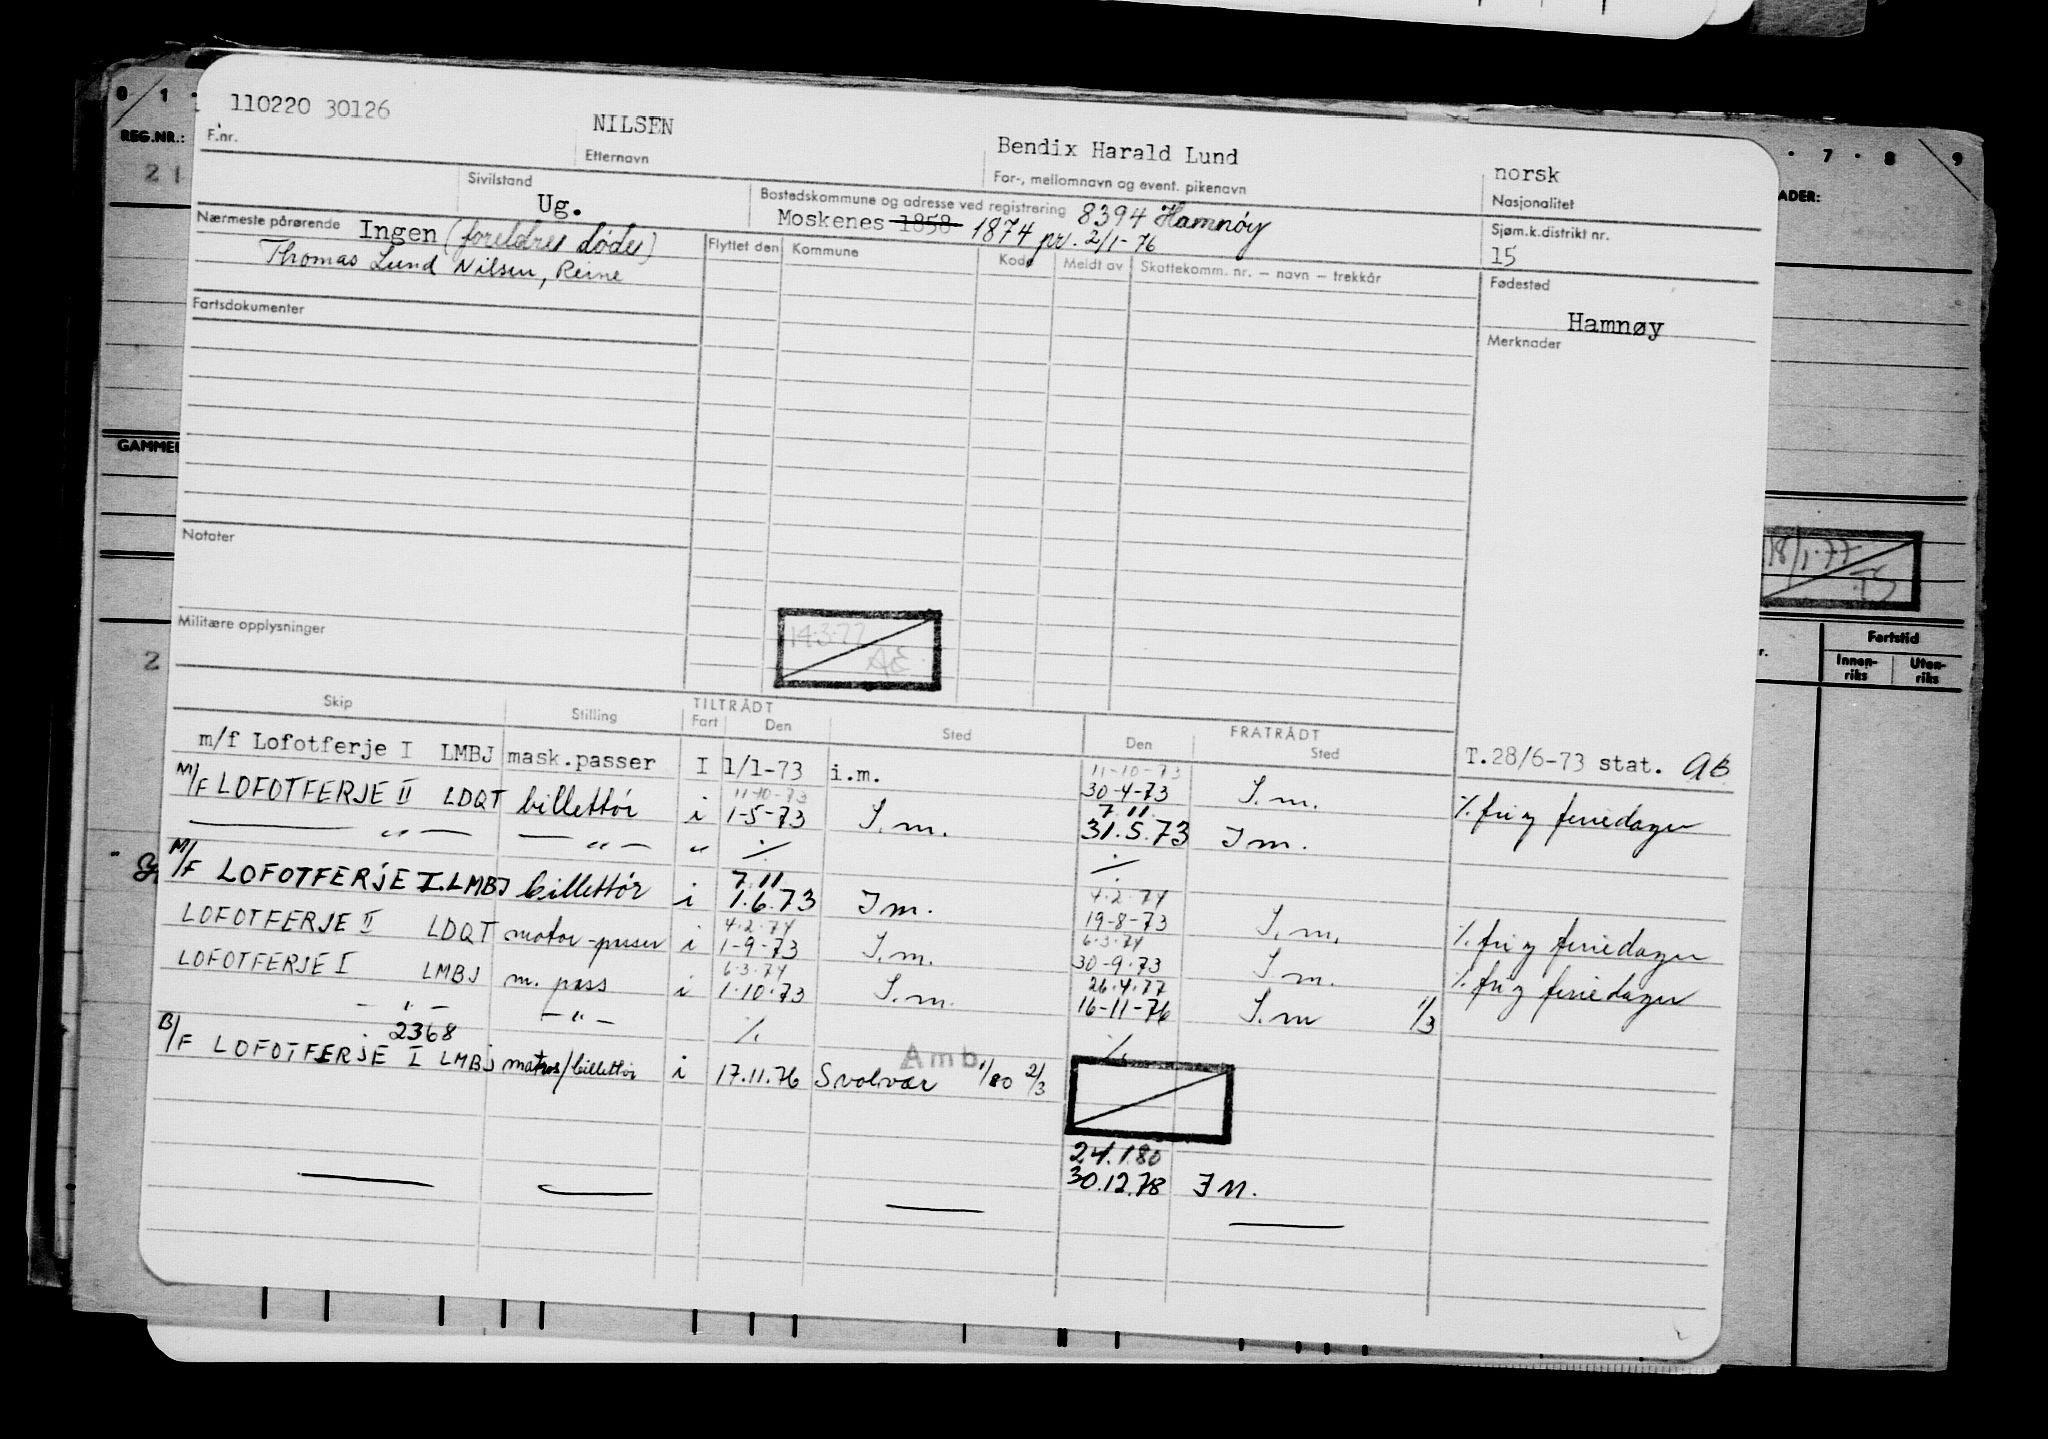 110220 30126
NILSEN
Bendix Harald Lund
norsk
F.nr.
Etternavn
For-, mellomnavn og event. pikenavn
Nasjonalitet
Sivilstand
Ug.
Bostedskommune og adresse ved registrering
8394 Hamnøy
Moskenes 1858 1874 pr. 2/1-76
Sjøm.k.distrikt nr.
15
Nærmeste pårørende
Ingen (foreldre døde)
Thomas Lund Nilsen, Reine
Flyttet den
Kommune
Kode
Meldt av
Skattekomm. nr. – navn – trekkår
Fødested
Hamnøy
Fartsdokumenter
Merknader
Notater
Militære opplysninger
14.3.77
AE
Skip
Stilling
TILTRÅDT
Fart
Den
Sted
FRATRÅDT
Den
Sted
11-10-73
m/f Lofotferje I LMBJ mask.passer I 1/1-73 i.m. 30-4-73 I.m. T.28/6-73 stat. AB
11-10-73 7.11
M/F LOFOTFERJE II LDQT billettør i 1-5-73 I.m. 31.5.73 I m. ٪ fri og feriedager
— " — — " — " ٪ ٪
7.11 4.2.74
M/F LOFOTFERJE I. LMBJ billettør i 1.6.73 I m. 19-8-73 I.m. ٪ fri og feriedager
4.2.74 6.3.74
LOFOTFERJE II LDQT motor-passer i 1-9-73 I.m. 30-9-73 I m. ٪ fri og feriedager
6.3.74 26.4.77
LOFOTFERJE I LMBJ m. pass i 1.10.73 I.m. 16-11-76 I.m 1/3
— " — — " — ٪ ٪
2368 Amb
B/F LOFOTFERJE I LMBJ matros/billettør i 17.11.76 Svolvær 1/80 2/3
24.1.80
30.12.78 I M.
0 1
REG.NR.:
21
GAMMEL
2
7 8 9
ADER:
18/1-77
TS
Fartstid
Innen-
riks
Uten-
riks